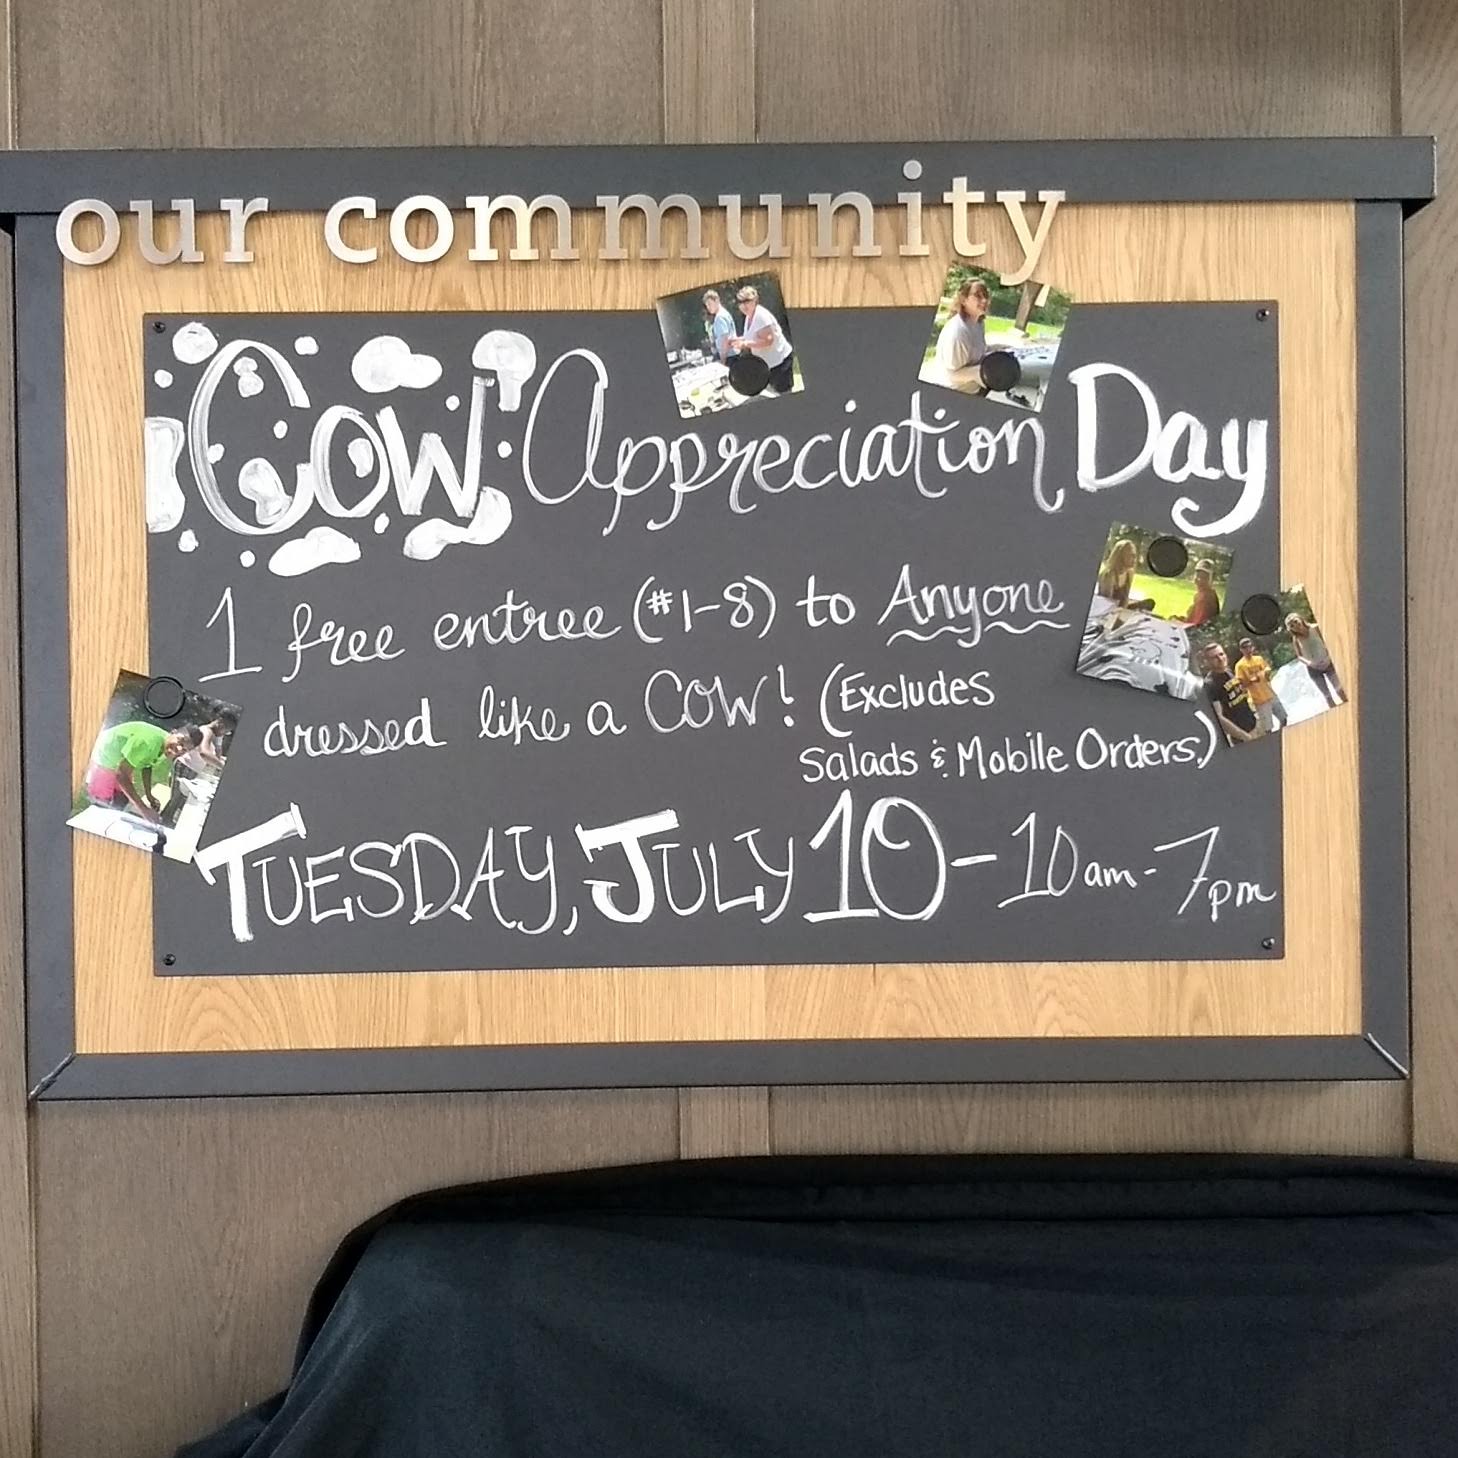 our community
Cow Appreciation Day
1 free entree (#1-8) to Anyone
dressed like a COW! (Excludes
Salads & Mobile Orders.)
TUESDAY, JULY 10 - 10am - 7pm